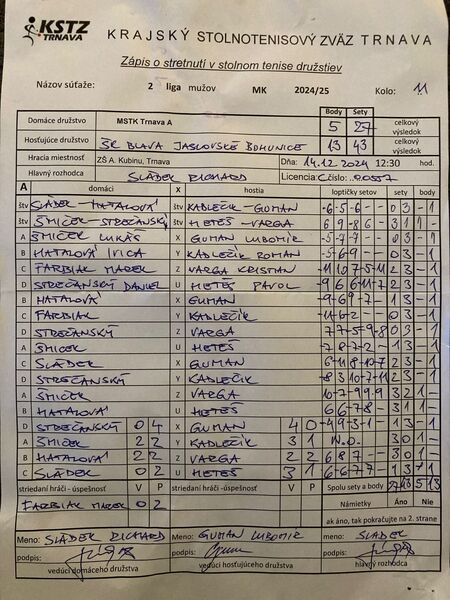 KSTZ
TRNAVA
KRAJSKÝ STOLNOTENISOVÝ ZVÄZ TRNAVA
Zápis o stretnutí v stolnom tenise družstiev
Názov súťaže: 2 liga mužov MK 2024/25 Kolo: 11
Body Sety
Domáce družstvo MSTK Trnava A 5 27 celkový výsledok
Hosťujúce družstvo ŠK BLAVA JASLOVSKÉ BOHUNICE 13 43 celkový výsledok
Hracia miestnosť ZŠ A. Kubinu, Trnava Dňa: 14.12.2024 12:30 hod.
Hlavný rozhodca SLÁDEK RICHARD Licencia: Číslo:
A domáci X hostia loptičky setov sety body
štv SLÁDEK - HATALOVÁ štv KADLEČÍK - GUMAN -6 -5 -6 - - 0 3 - 1
štv ŠMIČEK - STREČANSKÝ štv HETEŠ - VARGA
A ŠMIČEK LUKÁŠ X GUMAN LUBOMÍR -5 -7 -7 - - 0 3 - 1
B HATALOVÁ IVICA Y KADLEČÍK ROMAN -5 -6 9 - - 0 3 - 1
C FARBIAK MAREK Z VARGA KRISTIAN 2 3 - 1
D STREČANSKÝ DANIEL U HETEŠ PAVOL 2 3 - 1
B HATALOVÁ X GUMAN 1 3 - 1
C FARBIAK Y KADLEČÍK 0 3 - 1
D STREČANSKÝ Z VARGA
A ŠMIČEK U HETEŠ -7 8 -7 -2 - 1 3 - 1
C SLÁDEK X GUMAN 2 3 - 1
D STREČANSKÝ Y KADLEČÍK -8 3 10 -7 -11 2 3 - 1
A ŠMIČEK Z VARGA 3 2 1 -
B HATALOVÁ U HETEŠ 6 6 -7 8 - 3 1 1 -
D STREČANSKÝ 0 4 X GUMAN 4 0 -4 9 -3 -1 - 1 3 - 1
A ŠMIČEK 2 2 Y KADLEČÍK 3 1 W.O. 3 0 1 -
B HATALOVÁ 2 2 Z VARGA 2 2 6 8 7 - - 3 0 1 -
C SLÁDEK 0 2 U HETEŠ 3 1 1 3 - 1
striedaní hráči - úspešnosť V P striedaní hráči - úspešnosť V P Spolu sety a body 27 43 5 13
FARBIAK MAREK 0 2 Námietky Áno Nie
ak áno, tak pokračujte na 2. strane
Meno: SLÁDEK RICHARD Meno: GUMAN LUBOMÍR meno: SLÁDEK
podpis: podpis: podpis:
vedúci domáceho družstva vedúci hosťujúceho družstva hlavný rozhodca